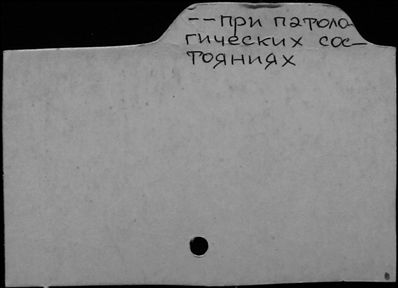 --при патоло-
гических сос-
тояниях